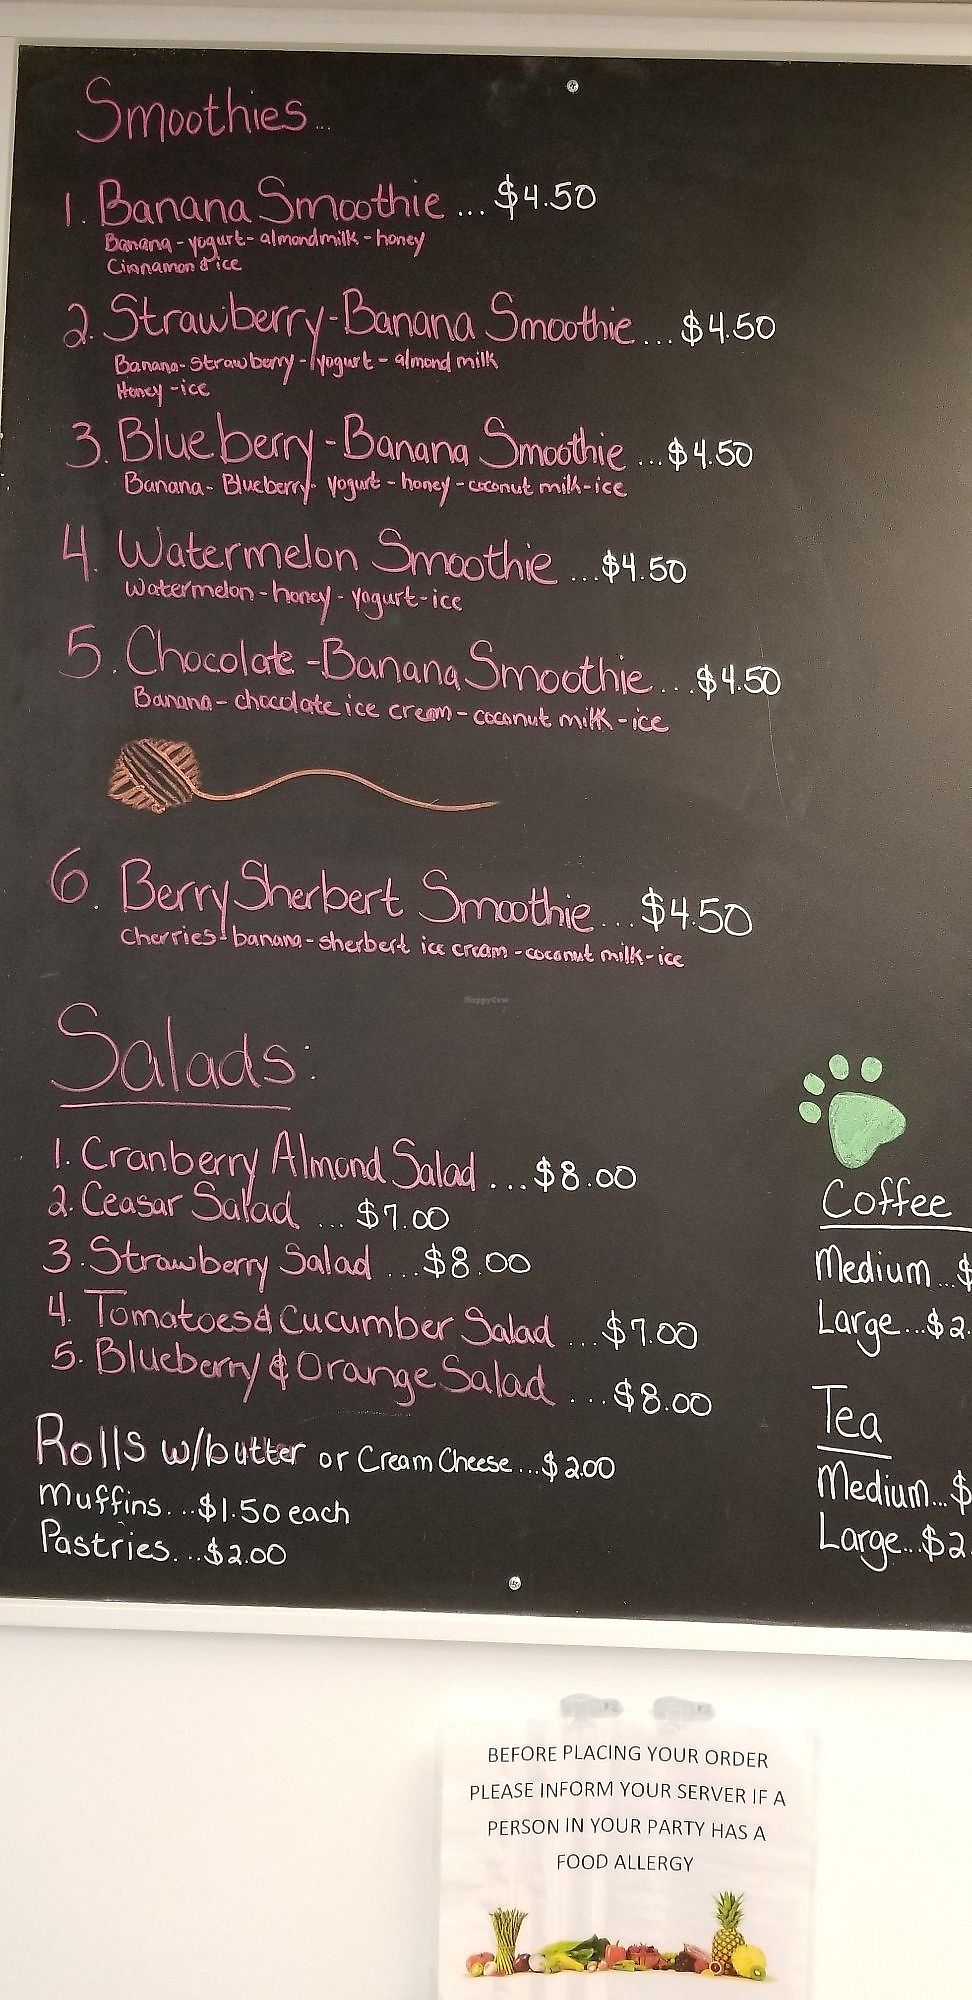 Smoothies...
1. Banana Smoothie ... $4.50
Banana - yogurt - almondmilk - honey
Cinnamon & ice
2. Strawberry-Banana Smoothie... $4.50
Banana- strawberry - yogurt - almond milk
Honey - ice
3. Blueberry-Banana Smoothie ...$4.50
Banana- Blueberry- yogurt - honey - coconut milk-ice
4. Watermelon Smoothie ...$4.50
Watermelon - honey - yogurt-ice
5. Chocolate-Banana Smoothie...$4.50
Banana - chocolate ice cream - coconut milk - ice
6. Berry Sherbert Smoothie...$4.50
Cherries- banana - sherbert ice cream - coconut milk - ice
HappyCow
Salads:
1. Cranberry Almond Salad ...$8.00
2. Ceasar Salad ... $7.00
3. Strawberry Salad ...$8.00
4. Tomatoes & Cucumber Salad ...$7.00
5. Blueberry & Orange Salad ...$8.00
Rolls w/butter or Cream Cheese...$2.00
Muffins...$1.50 each
Pastries...$2.00
Coffee
Medium...$
Large...$2.
Tea
Medium...$
Large...$2.
BEFORE PLACING YOUR ORDER
PLEASE INFORM YOUR SERVER IF A
PERSON IN YOUR PARTY HAS A
FOOD ALLERGY